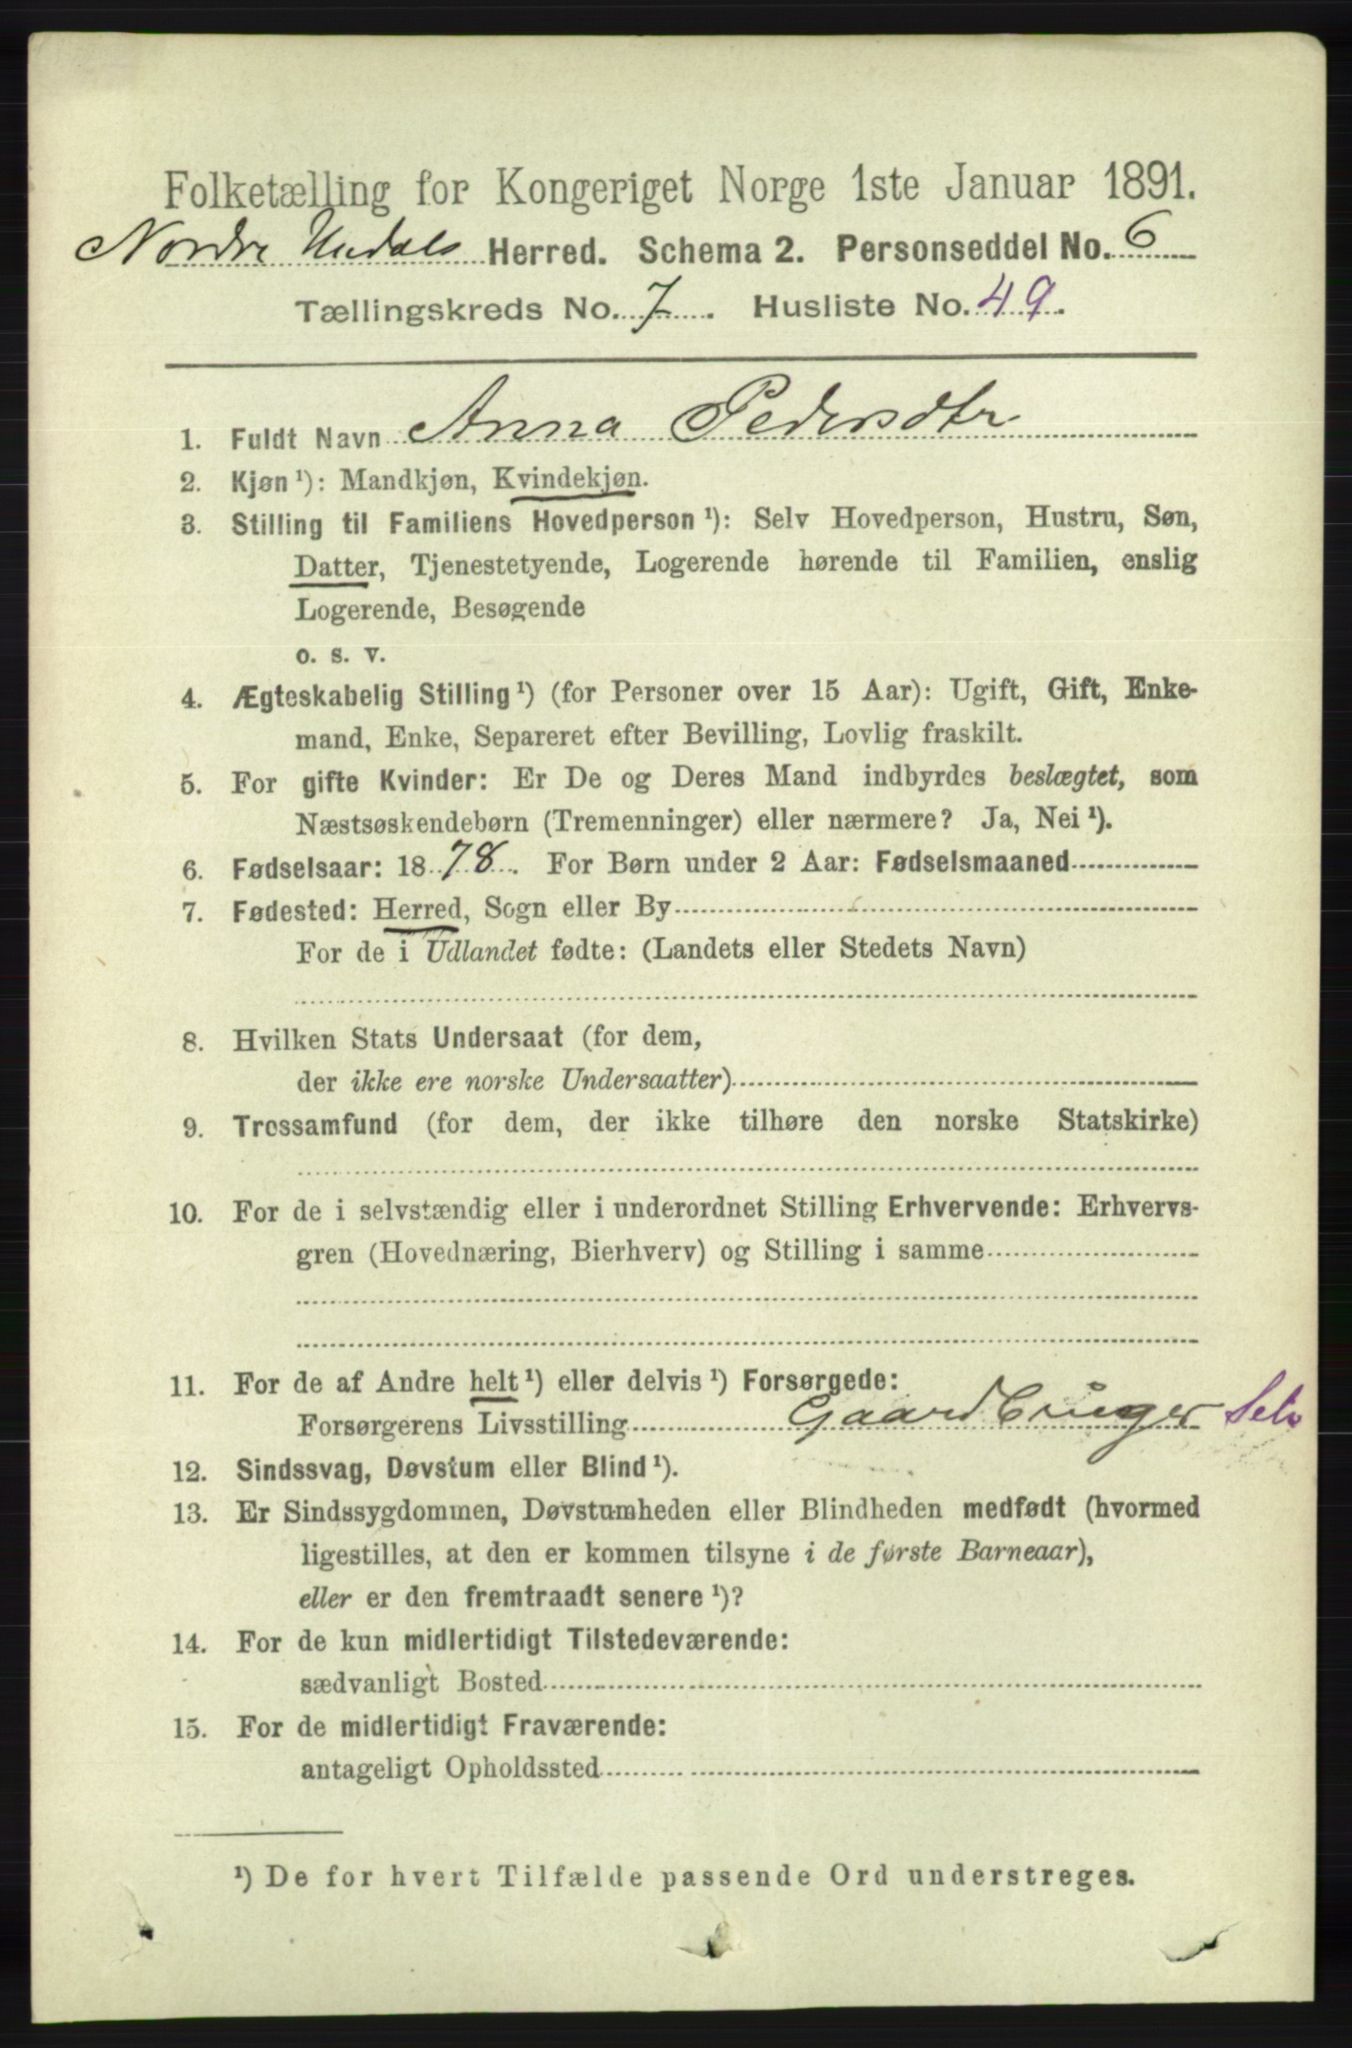 Folketælling for Kongeriget Norge 1ste Januar 1891.
Nordre Undals Herred. Schema 2. Personseddel No. 6
Tællingskreds No. 7. Husliste No. 49.
1. Fuldt Navn Anna Pedersdtr
2. Kjøn ¹): Mandkjøn, Kvindekjøn.
3. Stilling til Familiens Hovedperson ¹): Selv Hovedperson, Hustru, Søn,
Datter, Tjenestetyende, Logerende hørende til Familien, enslig
Logerende, Besøgende
o. s. v.
4. Ægteskabelig Stilling ¹) (for Personer over 15 Aar): Ugift, Gift, Enke-
mand, Enke, Separeret efter Bevilling, Lovlig fraskilt.
5. For gifte Kvinder: Er De og Deres Mand indbyrdes beslægtet, som
Næstsøskendebørn (Tremenninger) eller nærmere? Ja, Nei ¹).
6. Fødselsaar: 1878. For Børn under 2 Aar: Fødselsmaaned
7. Fødested: Herred, Sogn eller By
For de i Udlandet fødte: (Landets eller Stedets Navn)
8. Hvilken Stats Undersaat (for dem,
der ikke ere norske Undersaatter)
9. Trossamfund (for dem, der ikke tilhøre den norske Statskirke)
10. For de i selvstændig eller i underordnet Stilling Erhvervende: Erhvervs-
gren (Hovednæring, Bierhverv) og Stilling i samme
11. For de af Andre helt ¹) eller delvis ¹) Forsørgede:
Forsørgerens Livsstilling Gaardbruger Selv
12. Sindssvag, Døvstum eller Blind ¹).
13. Er Sindssygdommen, Døvstumheden eller Blindheden medfødt (hvormed
ligestilles, at den er kommen tilsyne i de første Barneaar),
eller er den fremtraadt senere ¹)?
14. For de kun midlertidigt Tilstedeværende:
sædvanligt Bosted
15. For de midlertidigt Fraværende:
antageligt Opholdssted
¹) De for hvert Tilfælde passende Ord understreges.